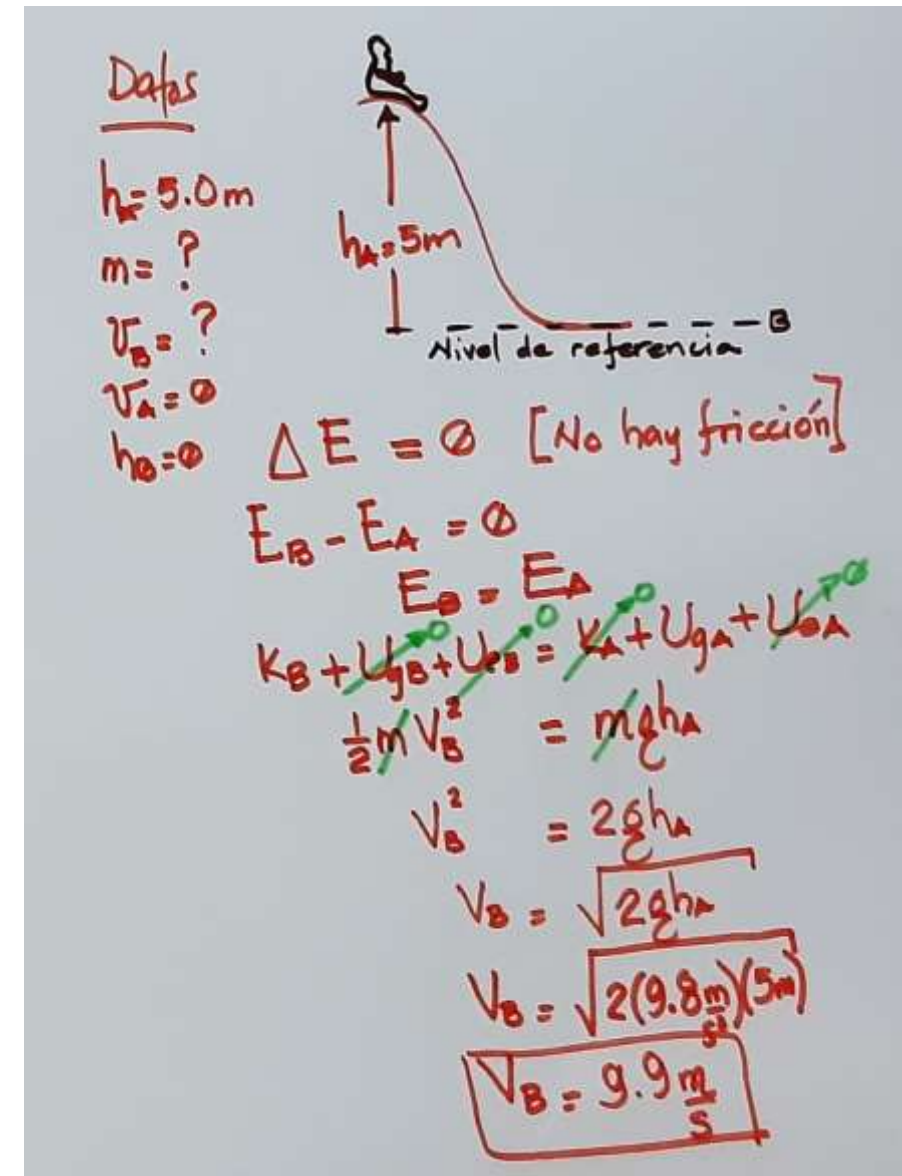 Datos
h_A = 5.0m
m = ?
V_B = ?
V_A = 0
h_B = 0
h_A = 5m
B
Nivel de referencia
ΔE = 0 [No hay fricción]
E_B - E_A = 0
E_B = E_A
K_B + U_gB + U_eB = K_A + U_gA + U_eA
0 0 0 0
1/2 m V_B² = m g h_A
V_B² = 2gh_A
V_B = √2gh_A
V_B = √2(9.8 m/s²)(5m)
V_B = 9.9 m/s